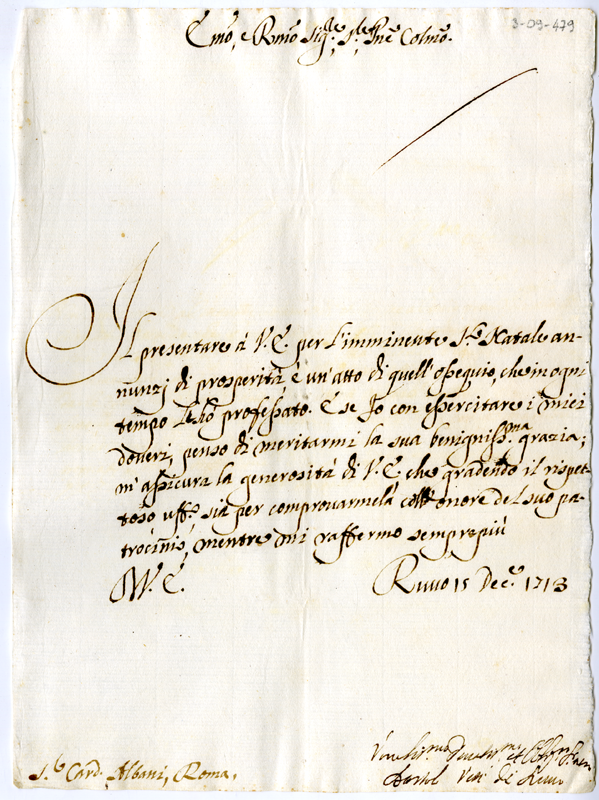 3-09-479
Emo, e Rmo Sig.re, S.re Pne Colmo.
Il presentare à V.E. per l'imminente S.to Natale an-
nunzj di prosperità, è un'atto di quell'ossequio, che in ogni
tempo Le hò professato. E se Io con essercitare i miei
doveri, penso di meritarmi la sua benigniss.ma grazia;
m'assicura la generosità di V.E. che gradendo il rispet-
toso uff.o, sia per comprovarmela coll'onore del suo pa-
trocinio, mentre mi raffermo semprepiù
Di V.E.
Ruvo 15 Dec.e 1713
S.r Card. Albani, Roma.
Bartol. Vesc. di Ruvo